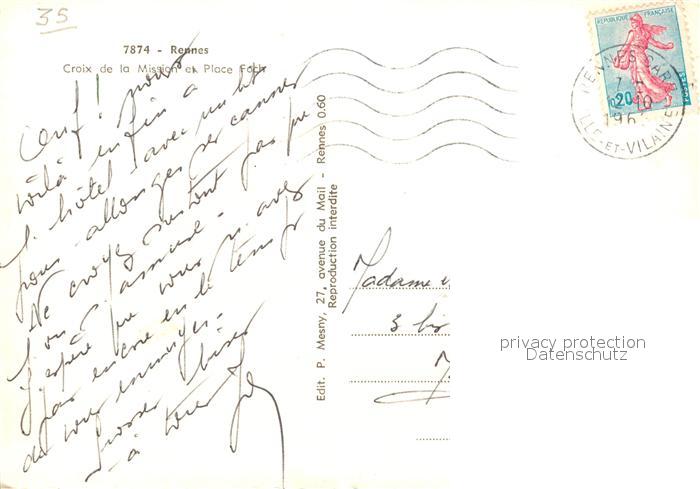 35
7874 - Rennes
Croix de la Mission et Place Foch
Ouf ! nous
voilà enfin à
l'hôtel avec un lit
pour allonger ses cannes
Ne croyez surtout pas que
l'on s'amuse.
J'espère que vous n'avez
pas encore eu le temps
de vous ennuyer.
Grosses bises
à tous
Edit. P. Mesny, 27, avenue du Mail - Rennes 0.60
Reproduction interdite
REPUBLIQUE FRANÇAISE
0,20
RENNES GARE
ILLE-ET-VILAINE
Madame
3 bis
privacy protection
Datenschutz